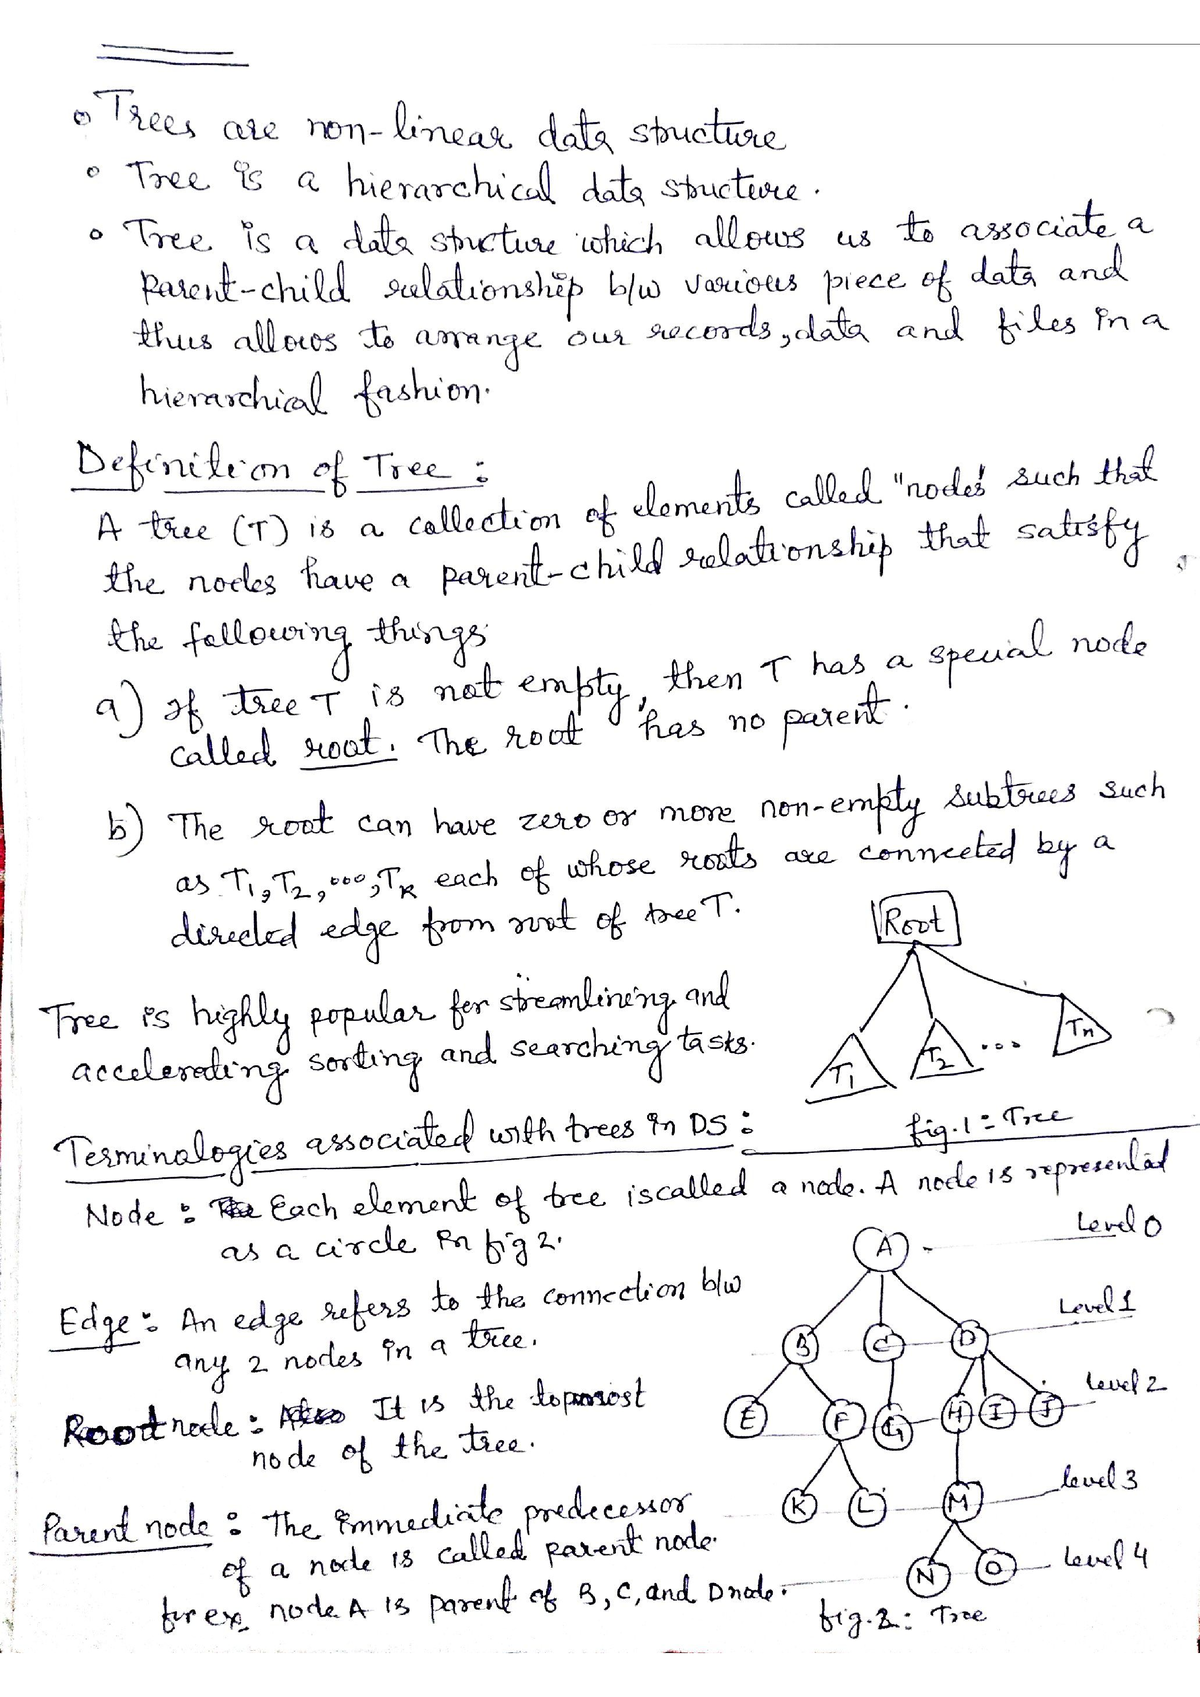 Trees are non-linear data structure
Tree is a hierarchical data structure.
Tree is a data structure which allows us to associate a
parent-child relationship b/w various piece of data and
thus allows to arrange our records, data and files in a
hierarchical fashion.
Definition of Tree :
A tree (T) is a collection of elements called "nodes" such that
the nodes have a parent-child relationship that satisfy
the following things
a) If tree T is not empty, then T has a special node
called root. The root has no parent.
b) The root can have zero or more non-empty subtrees such
as T1, T2, ..., TK each of whose roots are connected by a
directed edge from root of tree T.
Root
T1 T2 ... Tn
fig.1 = Tree
Tree is highly popular for streamlining and
accelerating sorting and searching tasks.
Terminologies associated with trees in DS :
Node : Each element of tree is called a node. A node is represented
as a circle in fig 2.
Edge : An edge refers to the connection b/w
any 2 nodes in a tree.
Root node : It is the topmost
node of the tree.
Parent node : The immediate predecessor
of a node is called parent node.
for ex. node A is parent of B, C, and D node.
A Level 0
B C D Level 1
E F G H I J Level 2
K L M level 3
N O Level 4
fig.2 : Tree